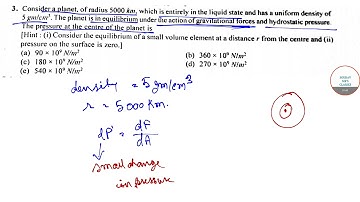 3. Consider a planet, of radius 5000 km, which is entirely in the liquid state and has a uniform density of
5 gm/cm³. The planet is in equilibrium under the action of gravitational forces and hydrostatic pressure.
The pressure at the centre of the planet is
[Hint : (i) Consider the equilibrium of a small volume element at a distance r from the centre and (ii)
pressure on the surface is zero.]
(a) 90 × 10⁹ N/m² (b) 360 × 10⁹ N/m²
(c) 180 × 10⁹ N/m² (d) 270 × 10⁹ N/m²
(e) 540 × 10⁹ N/m²
density = 5 gm/cm³
r = 5000 km.
dP = dF/dA
small change
in pressure